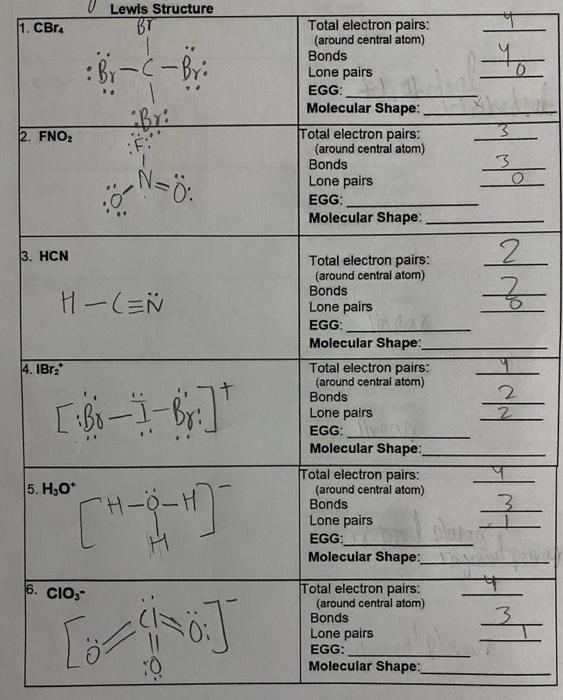 Lewis Structure
1. CBr₄
Br
:Br—C—Br:
:Br:
Total electron pairs: 4
(around central atom)
Bonds 4
Lone pairs 0
EGG:
Molecular Shape:
2. FNO₂
:F:
N=O:
:O
Total electron pairs: 3
(around central atom)
Bonds 3
Lone pairs 0
EGG:
Molecular Shape:
3. HCN
H—C≡N
Total electron pairs: 2
(around central atom)
Bonds 2
Lone pairs 0
EGG:
Molecular Shape:
4. IBr₂⁺
[:Br—I—Br:]⁺
Total electron pairs: 4
(around central atom)
Bonds 2
Lone pairs 2
EGG:
Molecular Shape:
5. H₃O⁺
[H—O—H]⁻
H
Total electron pairs: 4
(around central atom)
Bonds 3
Lone pairs 1
EGG:
Molecular Shape:
6. ClO₃⁻
[O=Cl=O:]⁻
:O
Total electron pairs: 4
(around central atom)
Bonds 3
Lone pairs 1
EGG:
Molecular Shape: